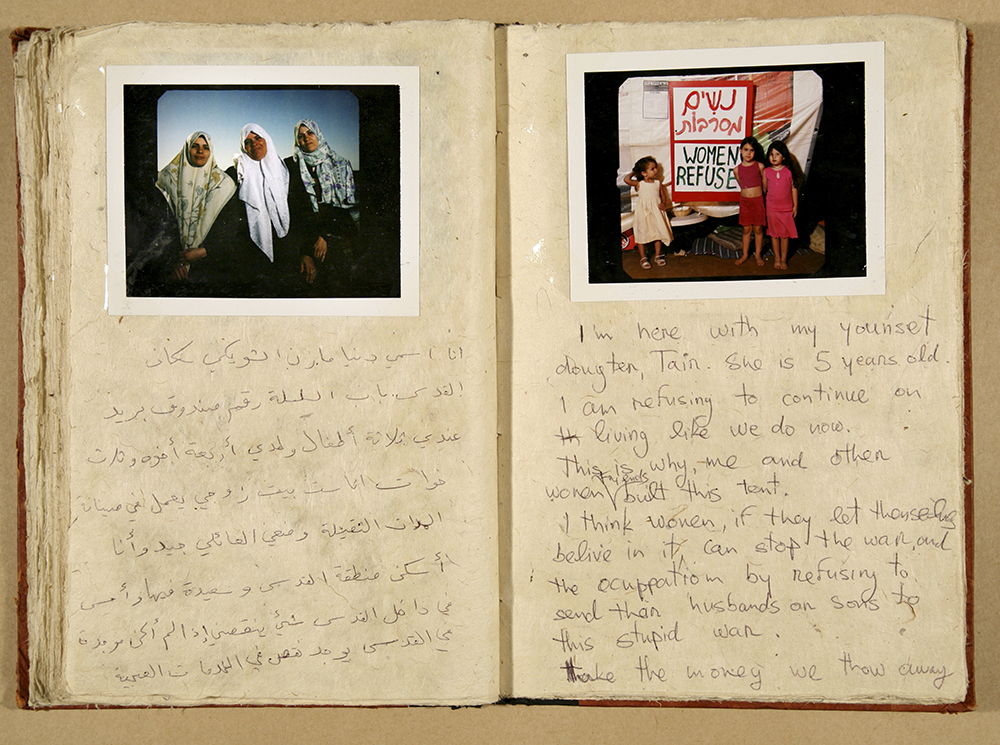 انا اسمي دنيا مازن الشويكي سكان
القدس باب السلسلة رقم صندوق بريد
عندي ثلاثة أطفال ولدي أربعة أخوه وثلاث
خوات انا ست بيت زوجي يعمل في صيانة
اليدات الثقيلة وضعي العائلي جيد وأنا
أسكن منطقة القدس و سعيدة فيها وأحس
في داخل القدس شئ ينقصني إذا لم أكن موجودة
في القدس يوجد نقص في الخدمات
נשים
מסרבות
WOMEN
REFUSE
I'm here with my younset
dougter, Tair. She is 5 years old.
I am refusing to continue on
living like we do now.
This is why, me and other
women friends built this tent.
I think women, if they let themselves
belive in it, can stop the war, and
the ocuppatiom by refusing to
send than husbands on sons to
this stupid war.
take the money we thow away